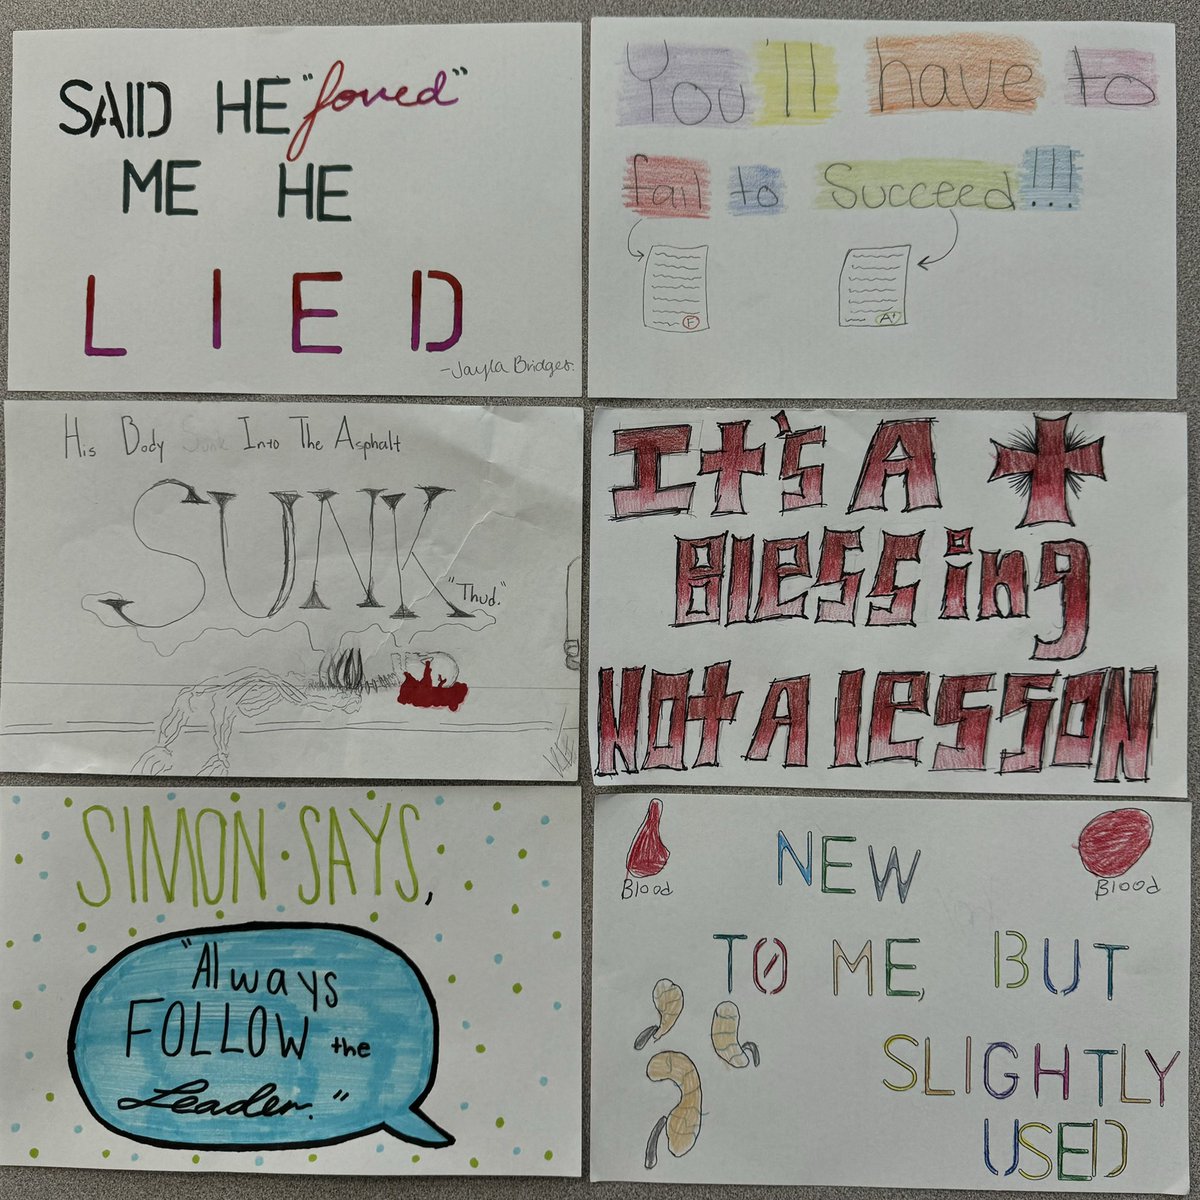 SAID HE "loved"
ME HE
LIED
-Jayla Bridges.
You'll have to
fail to Succeed!!!
F
A+
His Body Sunk Into The Asphalt
SUNK
"Thud."
It's A
Blessing
Not A lesson
SIMON SAYS,
"Always
FOLLOW the
Leader."
Blood
Blood
NEW
TO ME, BUT
SLIGHTLY
USED